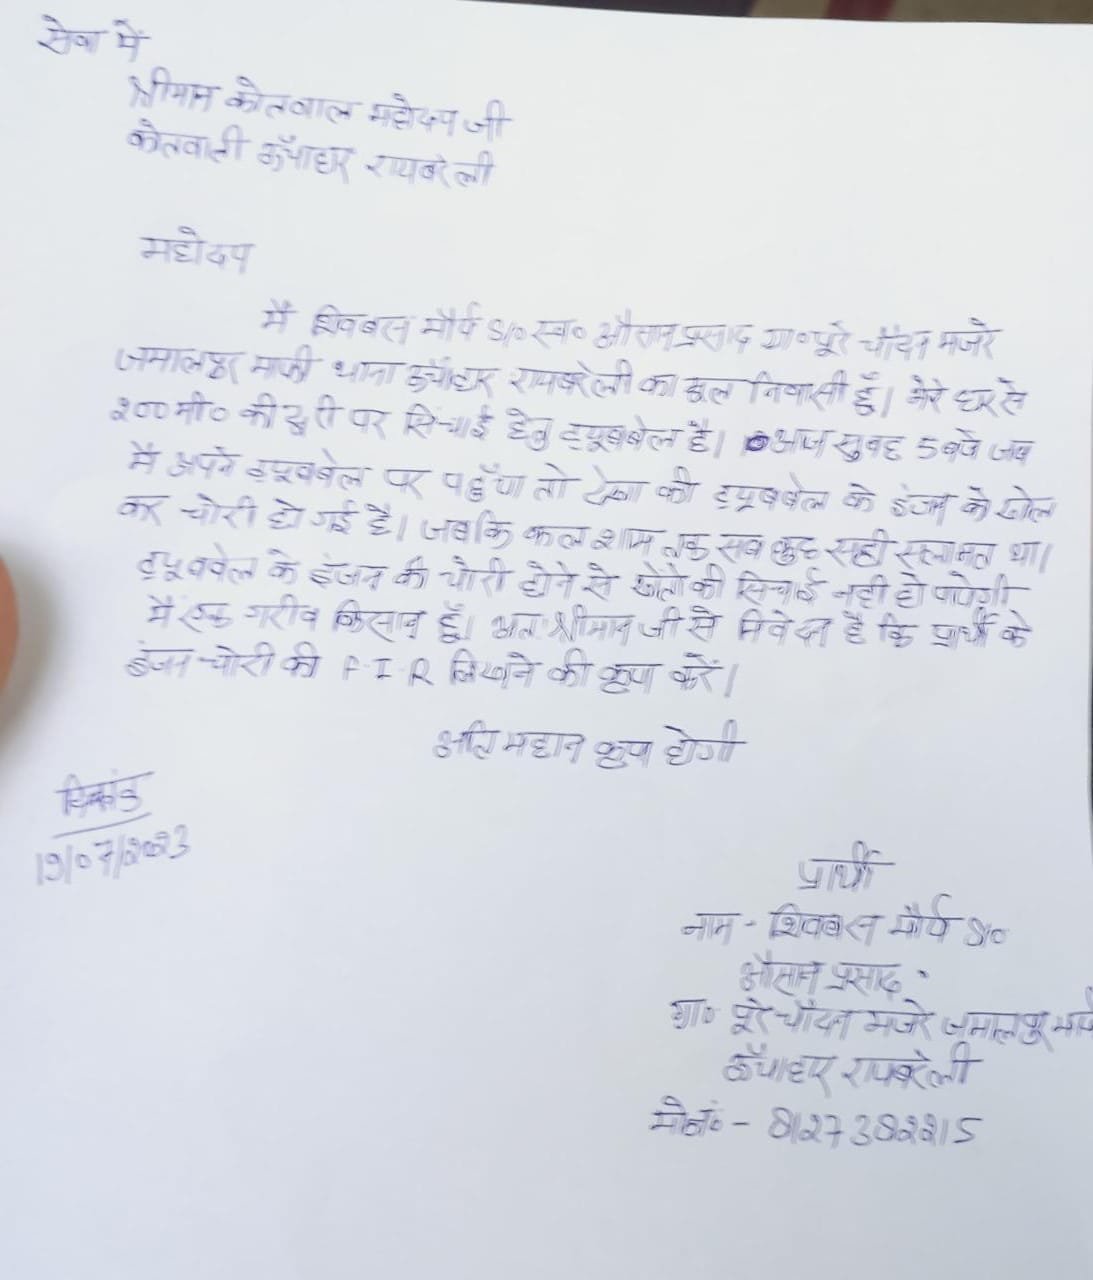 सेवा में
श्रीमान कोतवाल महोदय जी
कोतवाली ऊँचाहार रायबरेली
महोदय
मैं शिवबस मौर्य S/o स्व० औसान प्रसाद ग्रा० पूरे चाँदन मजरे
जमालपुर माफी थाना ऊँचाहार रायबरेली का मूल निवासी हूँ। मेरे घर से
२०० मी० की दूरी पर सिंचाई हेतु ट्यूबबेल है। आज सुबह 5 बजे जब
मैं अपने ट्यूबबेल पर पहुँचा तो देखा की ट्यूबबेल के इंजन के खोल
कर चोरी हो गई है। जबकि कल शाम तक सब कुछ सही सलामत था।
ट्यूबवेल के इंजन की चोरी होने से खेतों की सिचाई नही हो पायेगी
मैं एक गरीब किसान हूँ। अतः श्रीमान जी से निवेदन है कि प्रार्थी के
इंजन चोरी की F.I.R लिखने की कृपा करें।
अति महान कृपा होगी
दिनांक
19/07/2023
प्रार्थी
नाम - शिवबस मौर्य S/o
औसान प्रसाद
ग्रा० पूरे चाँदन मजरे जमालपुर माफी
ऊँचाहार रायबरेली
मो०नं० - 8127382215